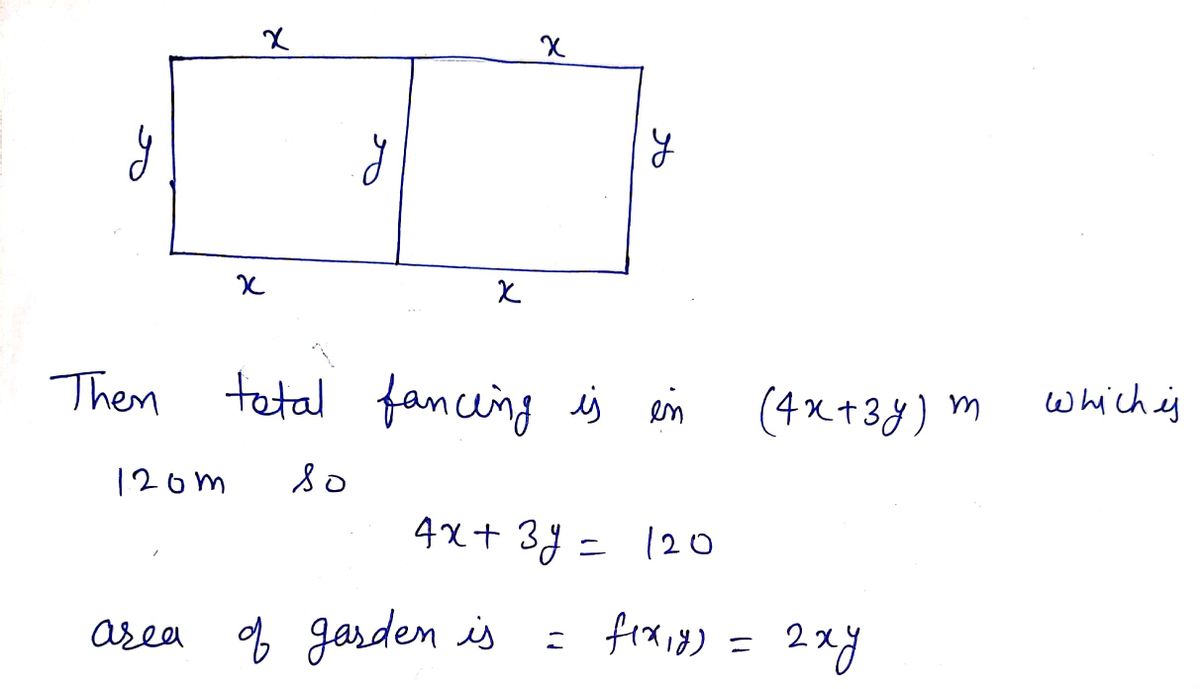 x x
y y y
x x
Then total fancing is in (4x+3y) m which is
120m so
4x + 3y = 120
area of garden is = f(x,y) = 2xy